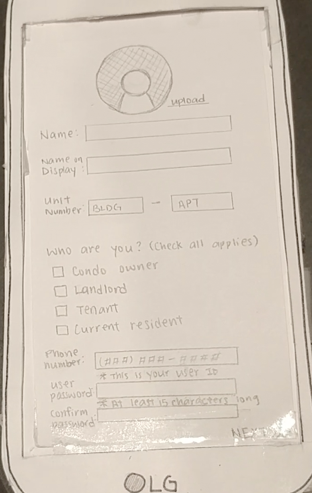 upload
Name:
Name on
Display:
Unit
Number BLDG - APT
Who are you? (Check all applies)
Condo owner
Landlord
Tenant
Current resident
Phone
number: (###) ###-####
* This is your user ID
user
password
* At least 15 characters long
Confirm
password
NEXT
LG